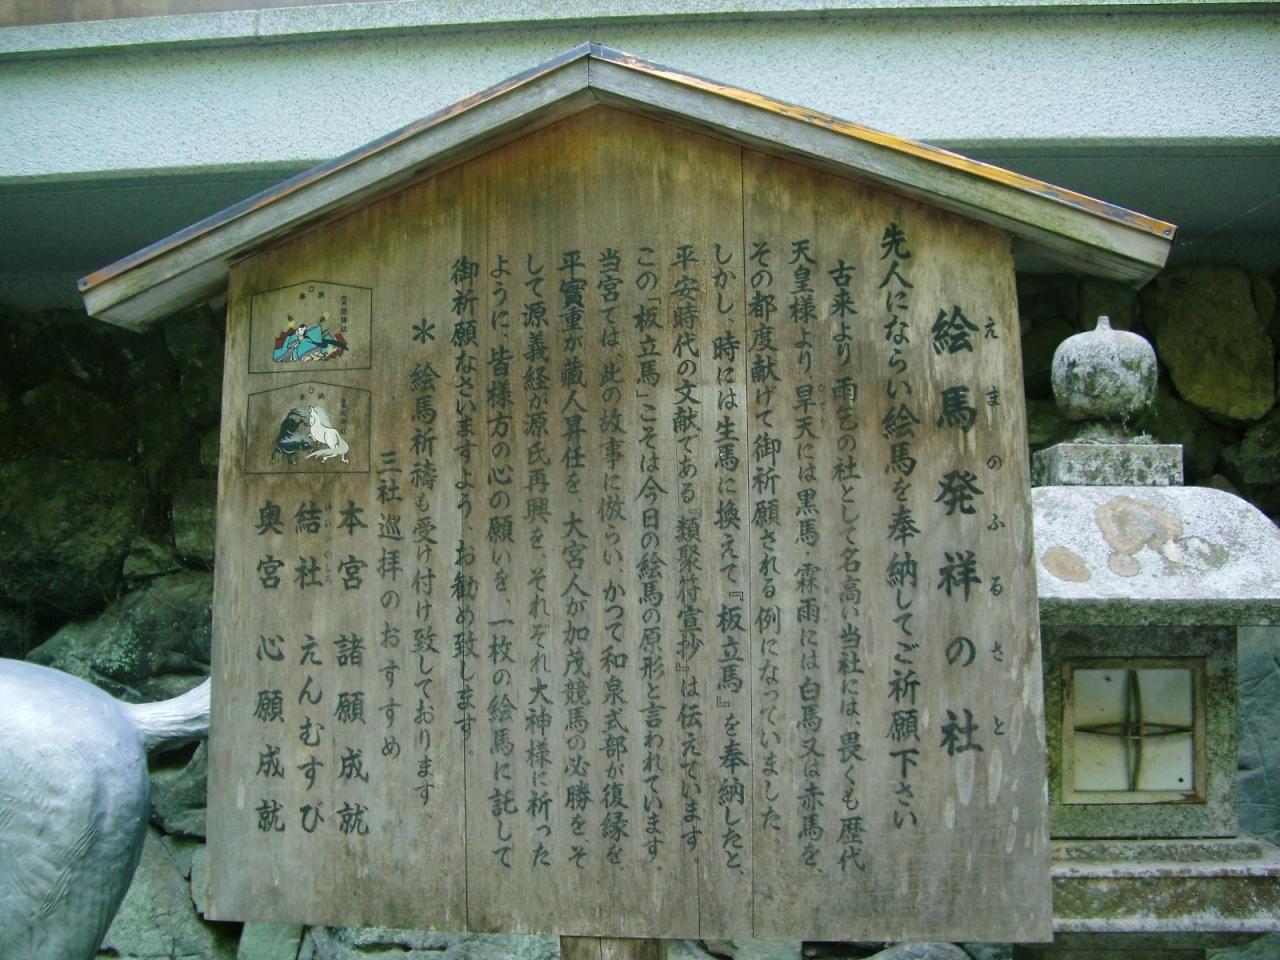 絵馬発祥の社
えまのふるさと
先人にならい絵馬を奉納してご祈願下さい
古来より雨乞の社として名高い当社には、畏くも歴代
天皇様より、旱天には黒馬・霖雨には白馬又は赤馬を、
ひでり
その都度献げて御祈願される例になっていました。
しかし、時には生馬に換えて『板立馬』を奉納したと、
平安時代の文献である『類聚符宣抄』は伝えています。
この「板立馬」こそは今日の絵馬の原形と言われています。
当宮では、此の故事に倣らい、かつて和泉式部が復縁を、
平實重が蔵人昇任を、大宮人が加茂競馬の必勝を、そ
して源義経が源氏再興を、それぞれ大神様に祈った
ように、皆様方の心の願いを、一枚の絵馬に託して
御祈願なさいますよう、お勧め致します。
＊絵馬祈祷も受け付け致しております。
三社巡拝のおすすめ
本宮 諸願成就
結社 えんむすび
ゆいのやしろ
奥宮 心願成就